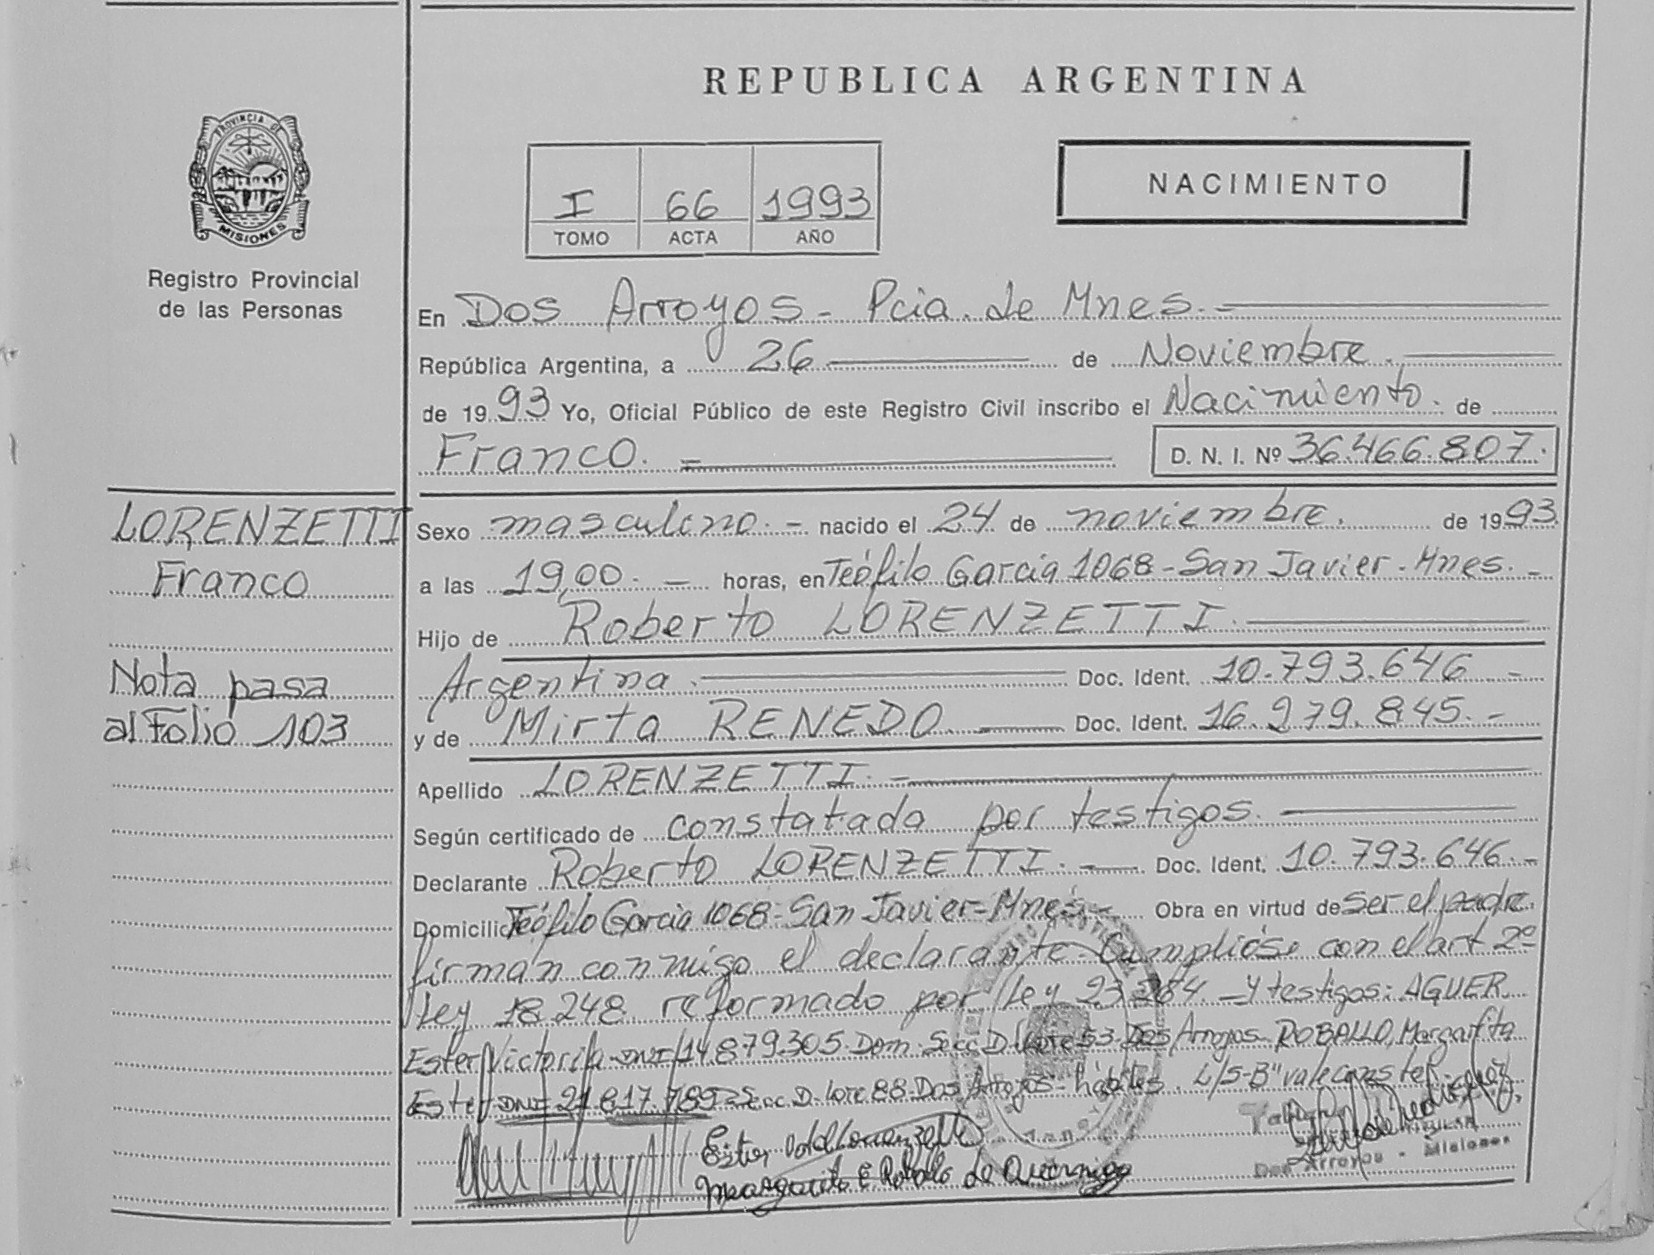 REPUBLICA ARGENTINA
PROVINCIA DE
MISIONES
Registro Provincial
de las Personas
I 66 1993
TOMO ACTA AÑO
NACIMIENTO
En Dos Arroyos - Pcia. de Mnes. -
República Argentina, a 26 de Noviembre.
de 1993 Yo, Oficial Público de este Registro Civil inscribo el Nacimiento. de
Franco. - D. N. I. Nº 36.466.807.
LORENZETTI
Franco
Nota pasa
al Folio 103
Sexo masculino. - nacido el 24 de noviembre. de 1993
a las 19,00. - horas, en Teófilo García 1068 - San Javier - Mnes. -
Hijo de Roberto LORENZETTI.
Argentina. Doc. Ident. 10.793.646 -
y de Mirta RENEDO Doc. Ident. 16.979.845. -
Apellido LORENZETTI. -
Según certificado de constatado por testigos.
Declarante Roberto LORENZETTI. - Doc. Ident. 10.793.646. -
Domicilio Teófilo García 1068 - San Javier - Mnes. - Obra en virtud de ser el padre.
firman conmigo el declarante - Cumplióse con el art 2º
Ley 18.248 reformado por Ley 23.264 - y testigos: AGUER
Ester Victorila DNI 14.879.305 Dom. Secc D Lote 53 Dos Arroyos - ROBALLO, Margarita
Ester DNI 21.817.789 Secc D. Lote 88 Dos Arroyos - hábiles. L/S-B" vale
Margarita E Robalo de
Dos Arroyos - Misiones